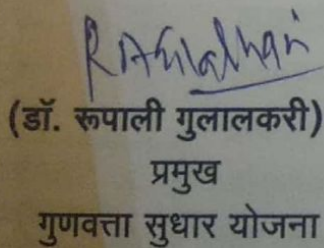 (डॉ. रूपाली गुलालकरी)
प्रमुख
गुणवत्ता सुधार योजना